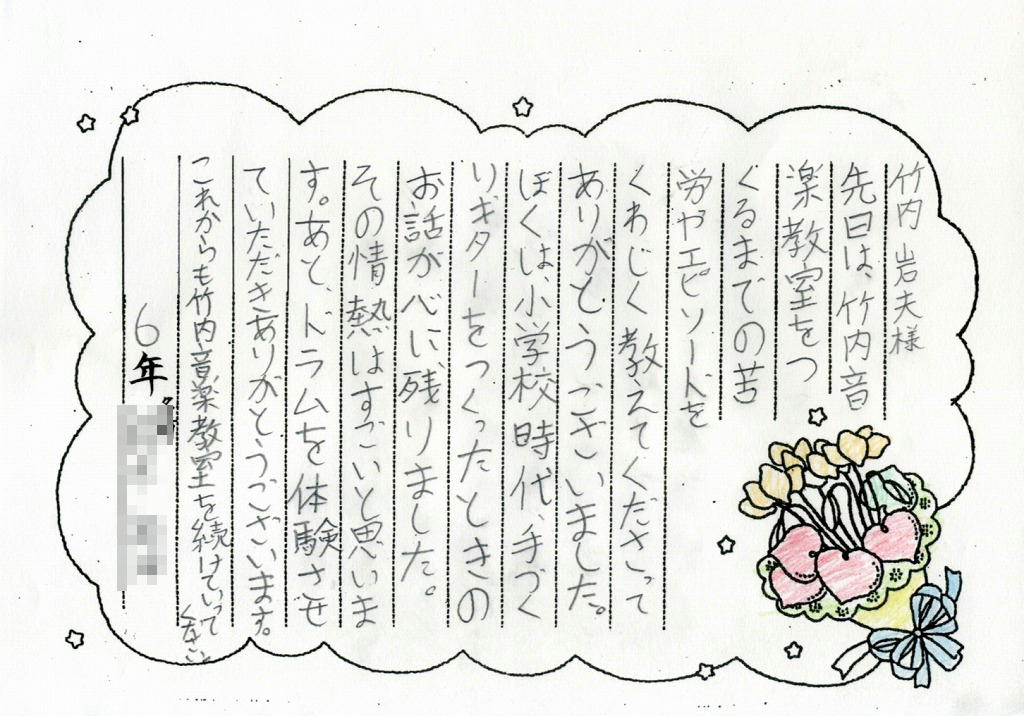 竹内 岩夫様
先日は、竹内音
楽教室をつ
くるまでの苦
労やエピソードを
くわしく教えてくださって
ありがとうございました。
ぼくは小学校時代、手づく
りギターをつくったときの
お話が心に残りました。
その情熱はすごいと思いま
す。あと、ドラムを体験させ
ていただきありがとうございます。
これからも竹内音楽教室を続けていって
ください
6年